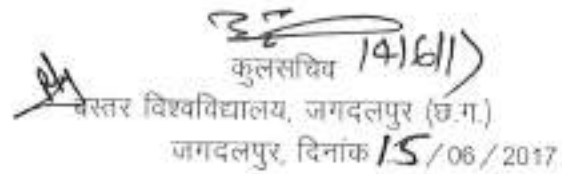 कुलसचिव 14/6/17
बस्तर विश्वविद्यालय, जगदलपुर (छ.ग.)
जगदलपुर, दिनांक 15/06/2017